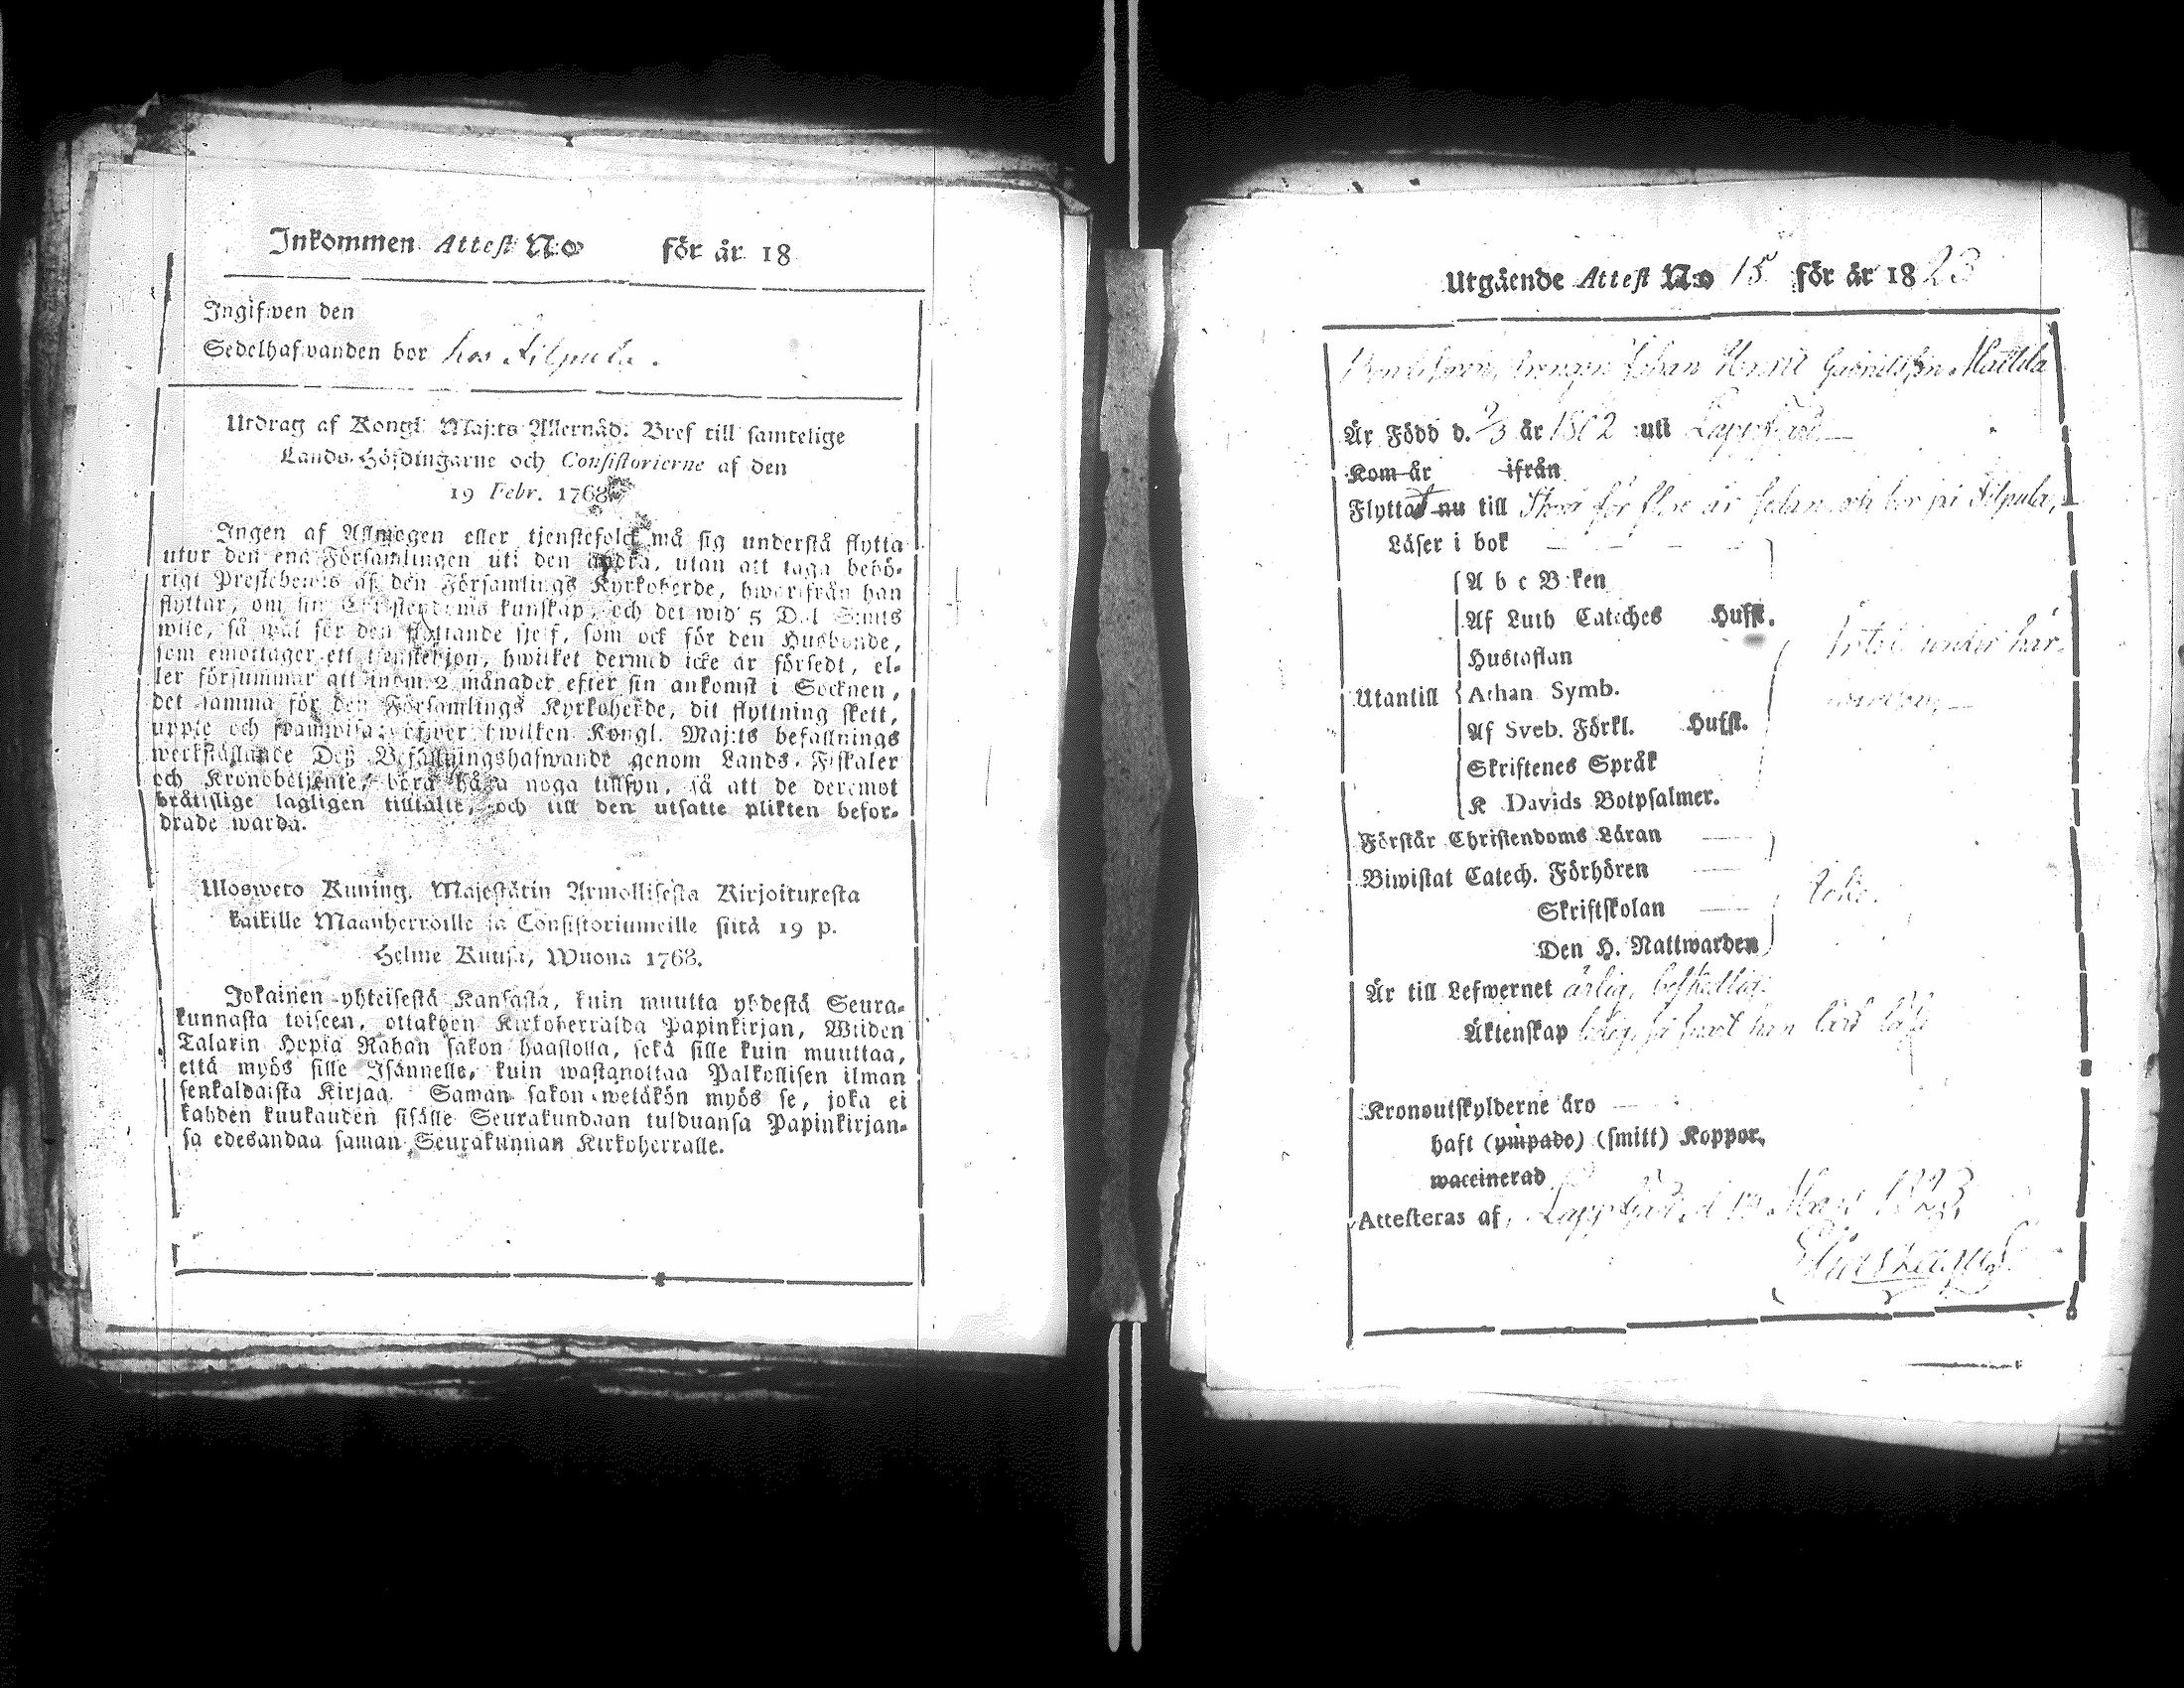 Inkommen Attest N:o för år 18
Ingifwen den
Sedelhafwanden bor hos Kilpula.
Utdrag af Kongl. Maj:ts Allernåd. Bref till samtelige
Lands-Höfdingarne och Consistorierne af den
19 Febr. 1768.
Ingen af Allmogen eller tjenstefolck må sig understå flytta
utur den ena Församlingen uti den andra, utan att taga behö-
rigt Prestebewis af den Församlings Kyrkoherde, hwarifrån han
flyttar, om sin Christendoms kunskap, och det wid 5 Dal. S:mts
wite, så wäl för den flyttande sjelf, som ock för den Husbonde,
som emottager ett tjenstehjon, hwilket dermed icke är försedt, el-
ler försummar att inom 2 månader efter sin ankomst i Socknen,
det samma för den Församlings Kyrkoherde, dit flyttning skett,
uppte och framwisa; öfwer hwilken Kongl. Maj:ts befallnings
werkställande Deß Befallningshafwande genom Lands-Fiskaler
och Kronobetjente, böra hafwa noga tillsyn, så att de deremot
brättslige lagligen tilltalte, och till den utsatte plikten befor-
drade warda.
Ulosweto Kuning. Majestätin Armollisesta Kirjoituxesta
kaikille Maanherroille ja Consistoriumeille siitä 19 p.
Helme Kuusa, Wuona 1768.
Jokainen yhteisestä Kansasta, kuin muutta yhdestä Seura-
kunnasta toiseen, ottakoon Kirkoherralda Papinkirjan, Wiiden
Talarin Hopia Rahan sakon haastolla, sekä sille kuin muuttaa,
että myös sille Isännelle, kuin wastanottaa Palkollisen ilman
senkaldaista Kirjaa. Saman sakon wetäkön myös se, joka ei
kahden kuukauden sisälle Seurakundaan tulduansa Papinkirjan-
sa edesandaa saman Seurakunnan Kirkoherralle.
Utgående Attest N:o 15 för år 1823
drengen Johan Henric Gabrielsson Mattila
Är Född d. 2/3 år 1802 uti Lappfjärd
Kom år ifrån
Flyttat nu till för flere år sedan och bor på Kilpula,
Läser i bok
A b c B:ken
Af Luth Cateches Hufst.
Hustaflan
Utantill Athan Symb.
Af Sveb. Förkl. Hufst.
Skriftenes Språk
K Davids Botpsalmer.
under här-
waron
Förstår Christendoms Läran
Biwistat Catech. Förhören
Skriftskolan
Den H. Nattwarden
Är till Lefwernet ärlig, beskedlig.
Äktenskap ledig, så
Kronoutskylderne äro
haft (ympade) (smitt) Koppor,
waccinerad
Attesteras af, Lappfjärd d Mars 1823